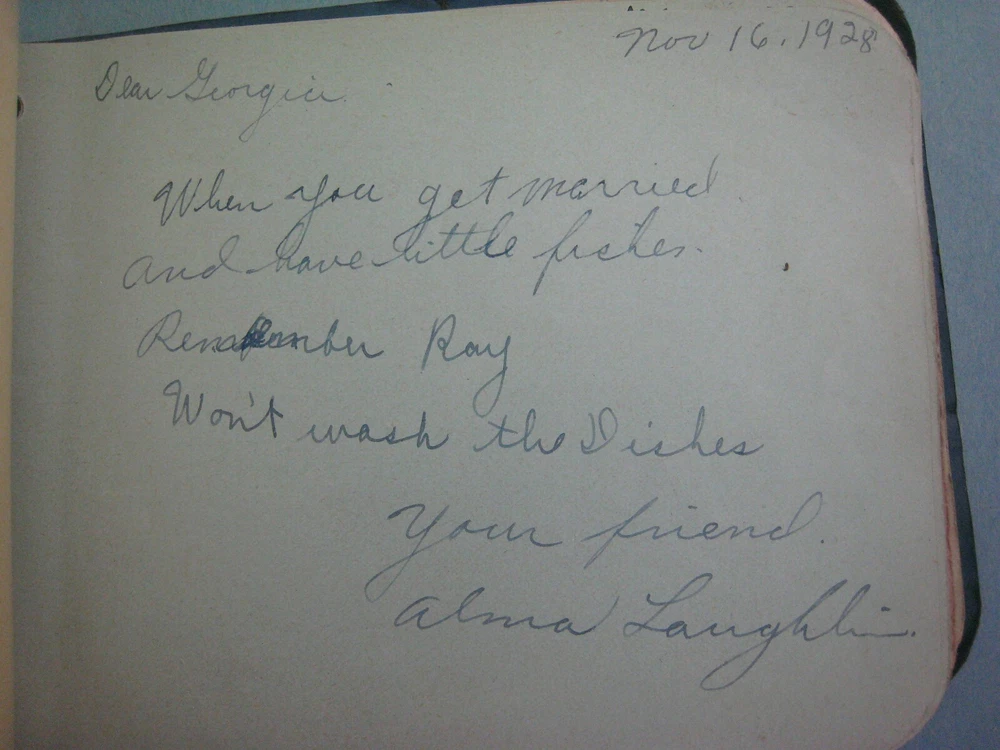 Nov 16, 1928
Dear Georgia
When you get married
and have little fishes.
Remember Ray
Won't wash the Dishes
Your friend.
Alma Laughlin.